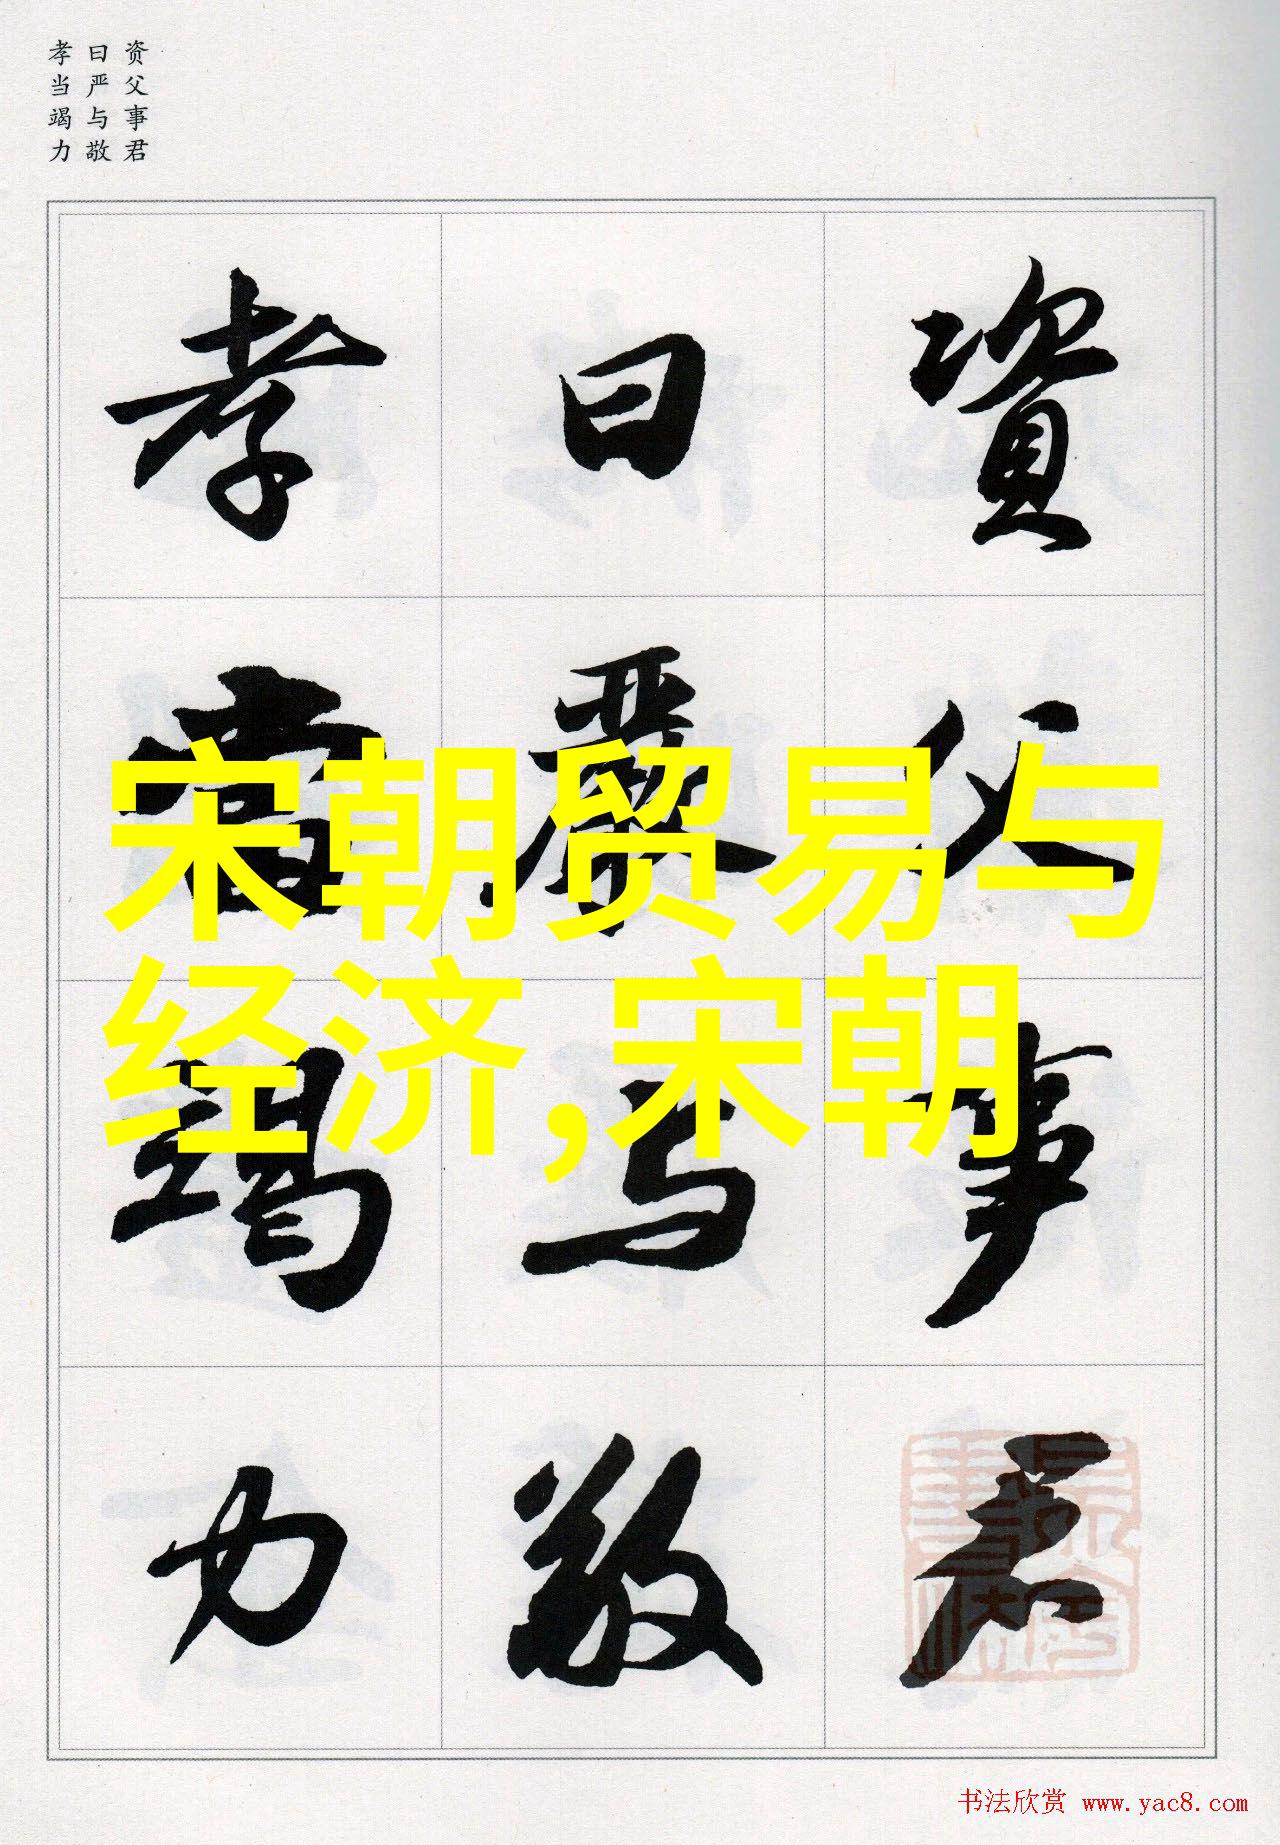 资父事君
曰严与敬
孝当竭力
資父事君
曰嚴与敬
孝當竭力
宋朝贸易与
经济,宋朝
书法欣赏 www.yac8.com